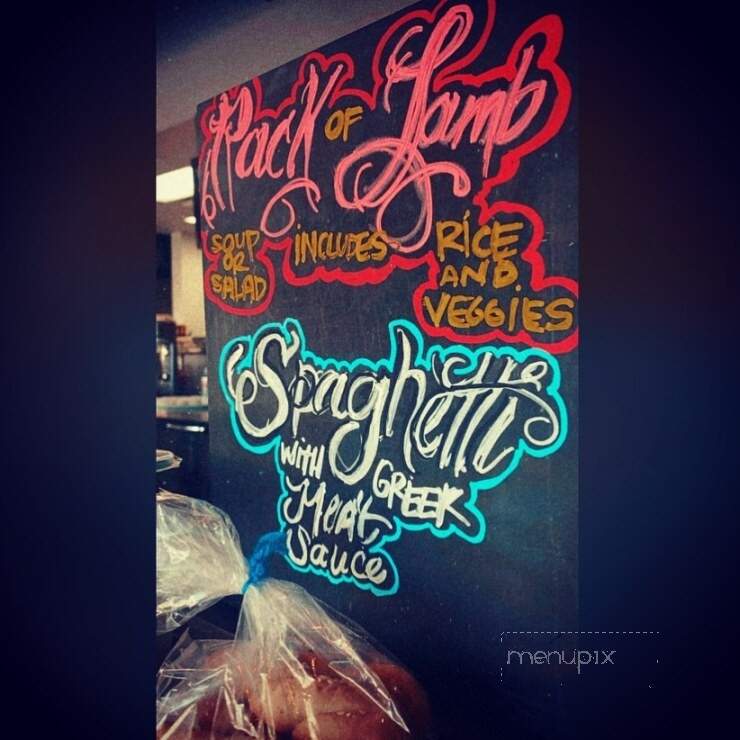 Rack OF Lamb
SOUP OR SALAD
INCLUDES
RICE AND VEGGIES
Spaghetti
WITH GREEK
Meat
Sauce
menupix